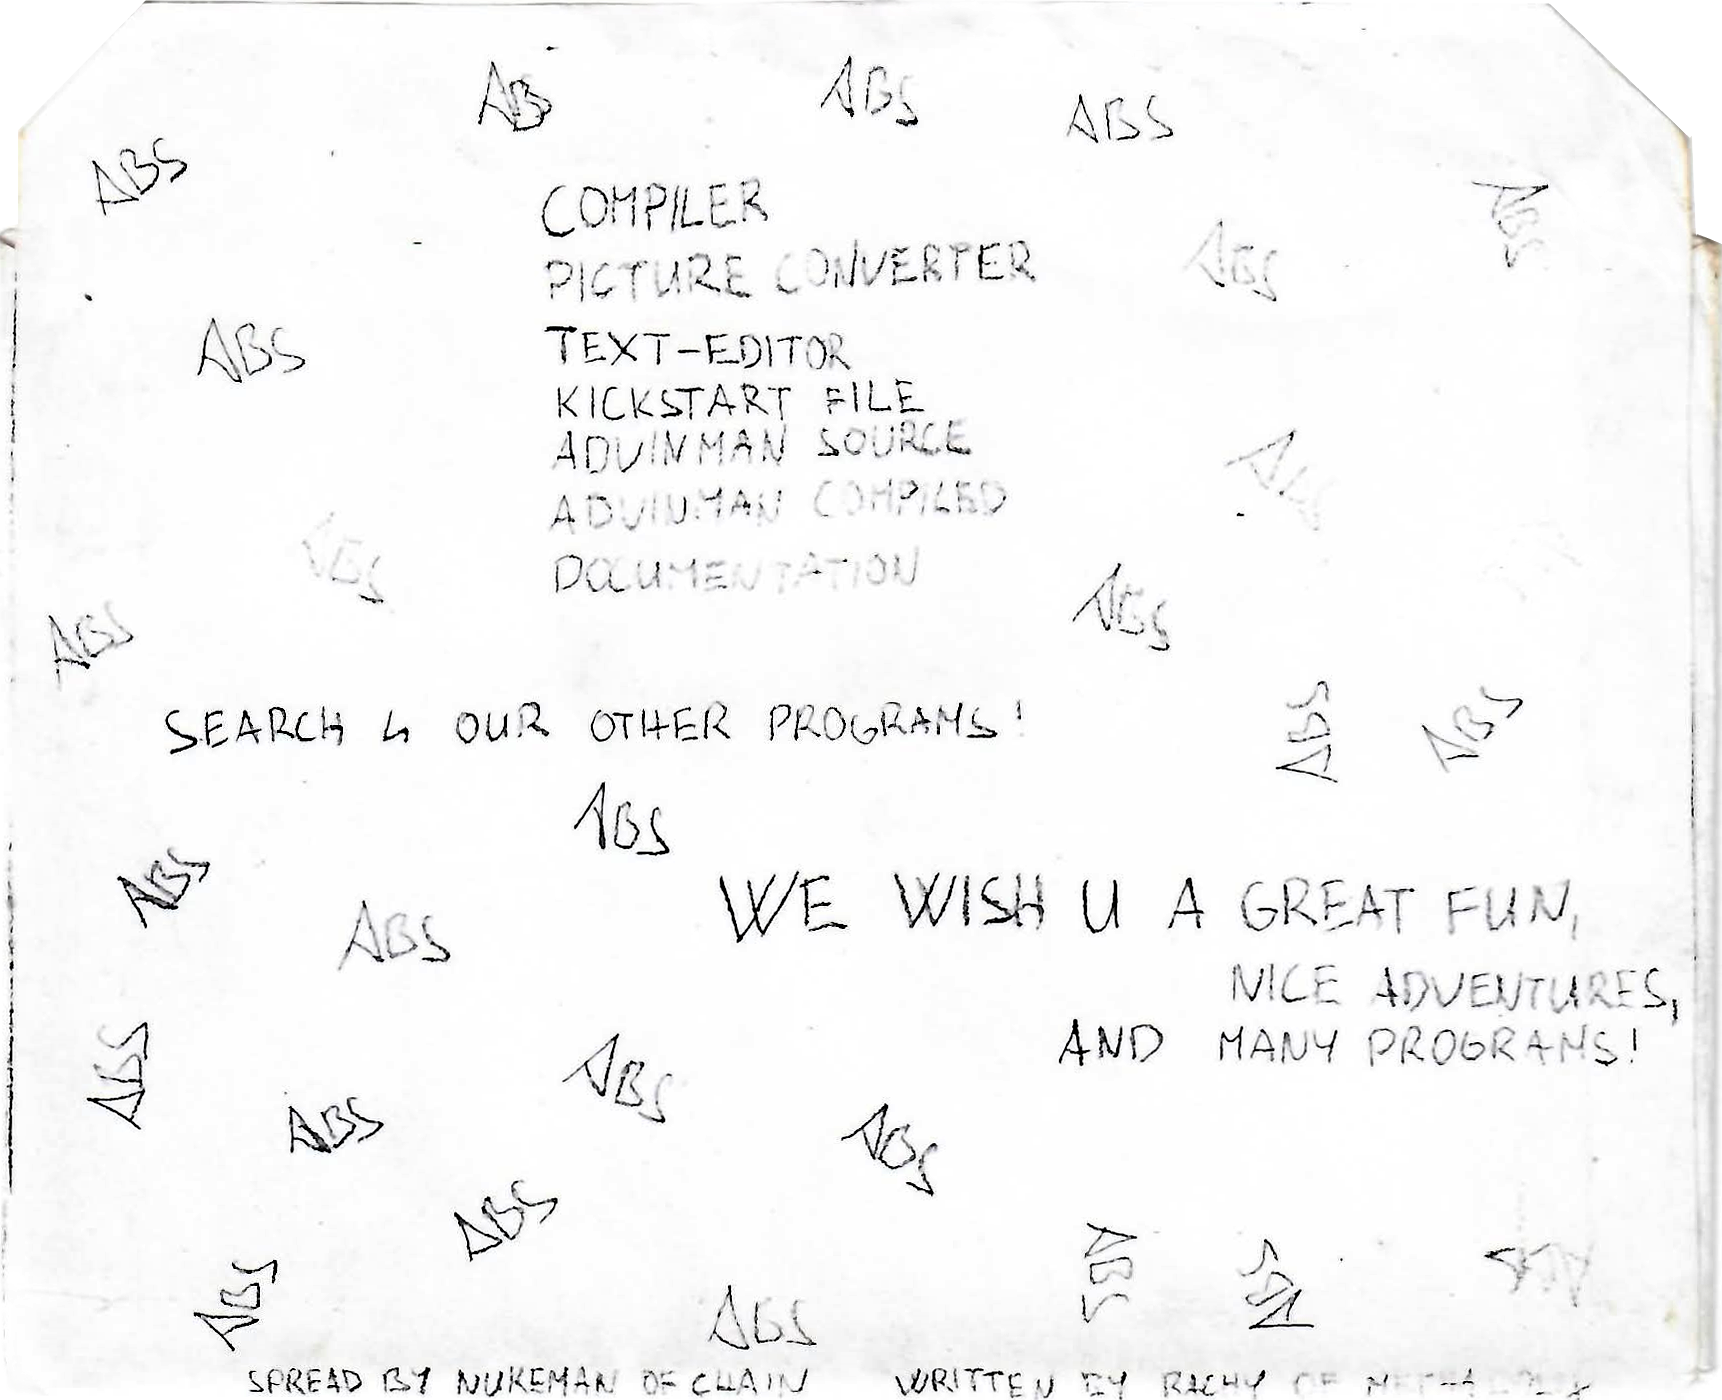 AB
ABS
ABS
ABS
COMPILER
ABS
PICTURE CONVERTER
ABS
ABS
TEXT-EDITOR
KICKSTART FILE
ADVINMAN SOURCE
ABS
ADVINMAN COMPILED
ABS
DOCUMENTATION
ABS
ABS
SEARCH 4 OUR OTHER PROGRAMS!
ABS
ABS
ABS
ABS
WE WISH U A GREAT FUN,
ABS
NICE ADVENTURES,
AND MANY PROGRAMS!
ABS
ABS
ABS
ABS
ABS
ABS
ABS
ABS
ABS
SPREAD BY NUKEMAN OF CHAIN
WRITTEN BY RACHY OF